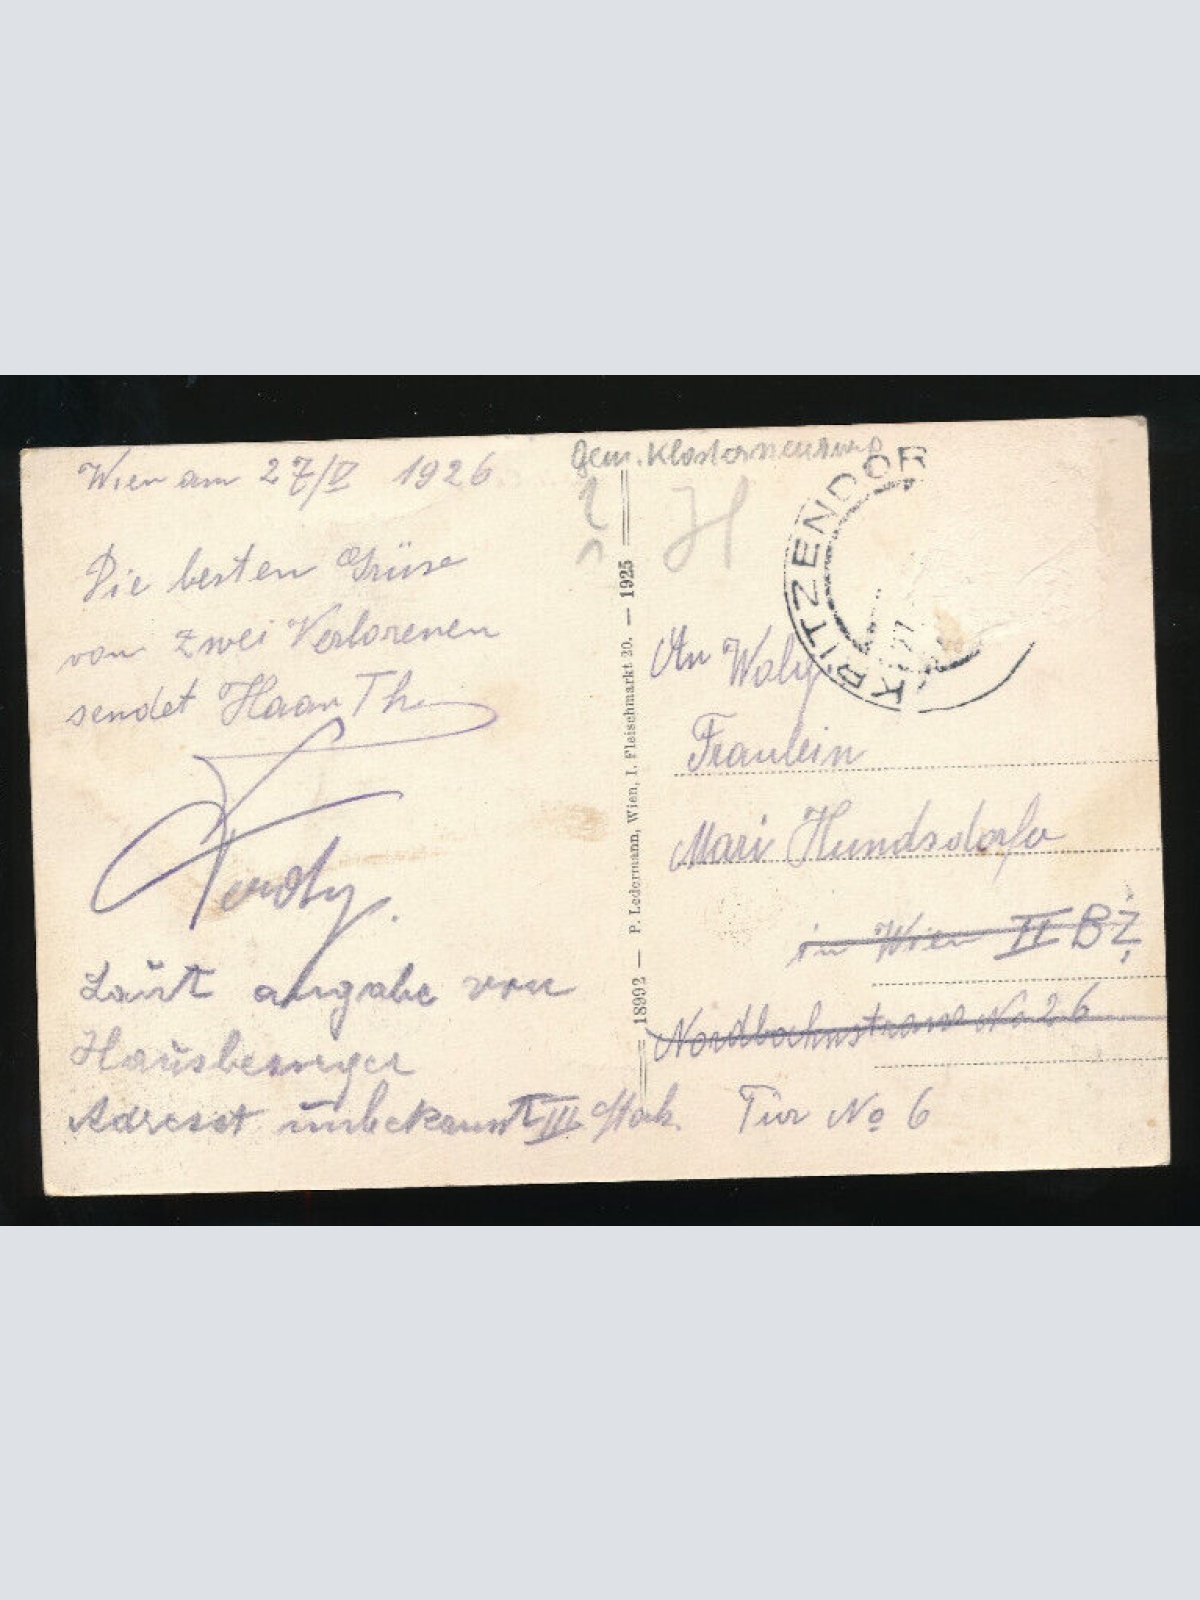 Wien am 27/V 1926
Die besten Grüse
von zwei Verlorenen
sendet Haan Th
Ferdy.
Laut angabe von
Hausbesorger
Adresat unbekannt
Gem. Klosterneuburg
H
KRITZENDORF
18992 — P. Ledermann, Wien, I. Fleischmarkt 20. — 1925
An Waly
Fraulein
Mari Hundsdorfa
in Wien II BZ.
Nordbahnstrasse No 26
III Stok. Tür No 6